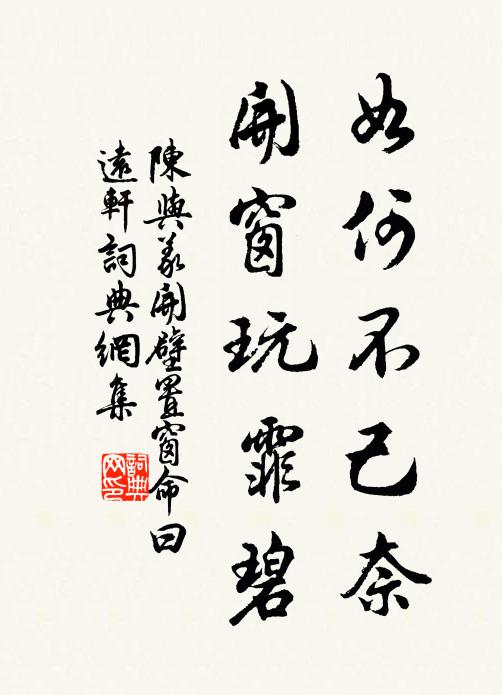 如何不己奈
開窗玩霏碧
陳與義開壁置窗命曰
遠軒詞典網集
詞典网印